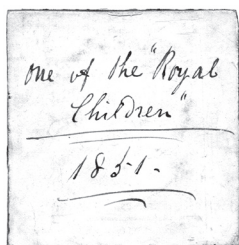 one of the "Royal
Children"
1851-